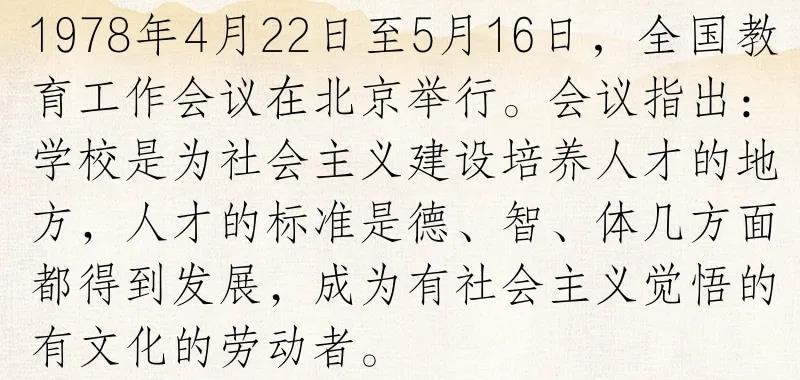 1978年4月22日至5月16日，全国教
育工作会议在北京举行。会议指出：
学校是为社会主义建设培养人才的地
方，人才的标准是德、智、体几方面
都得到发展，成为有社会主义觉悟的
有文化的劳动者。